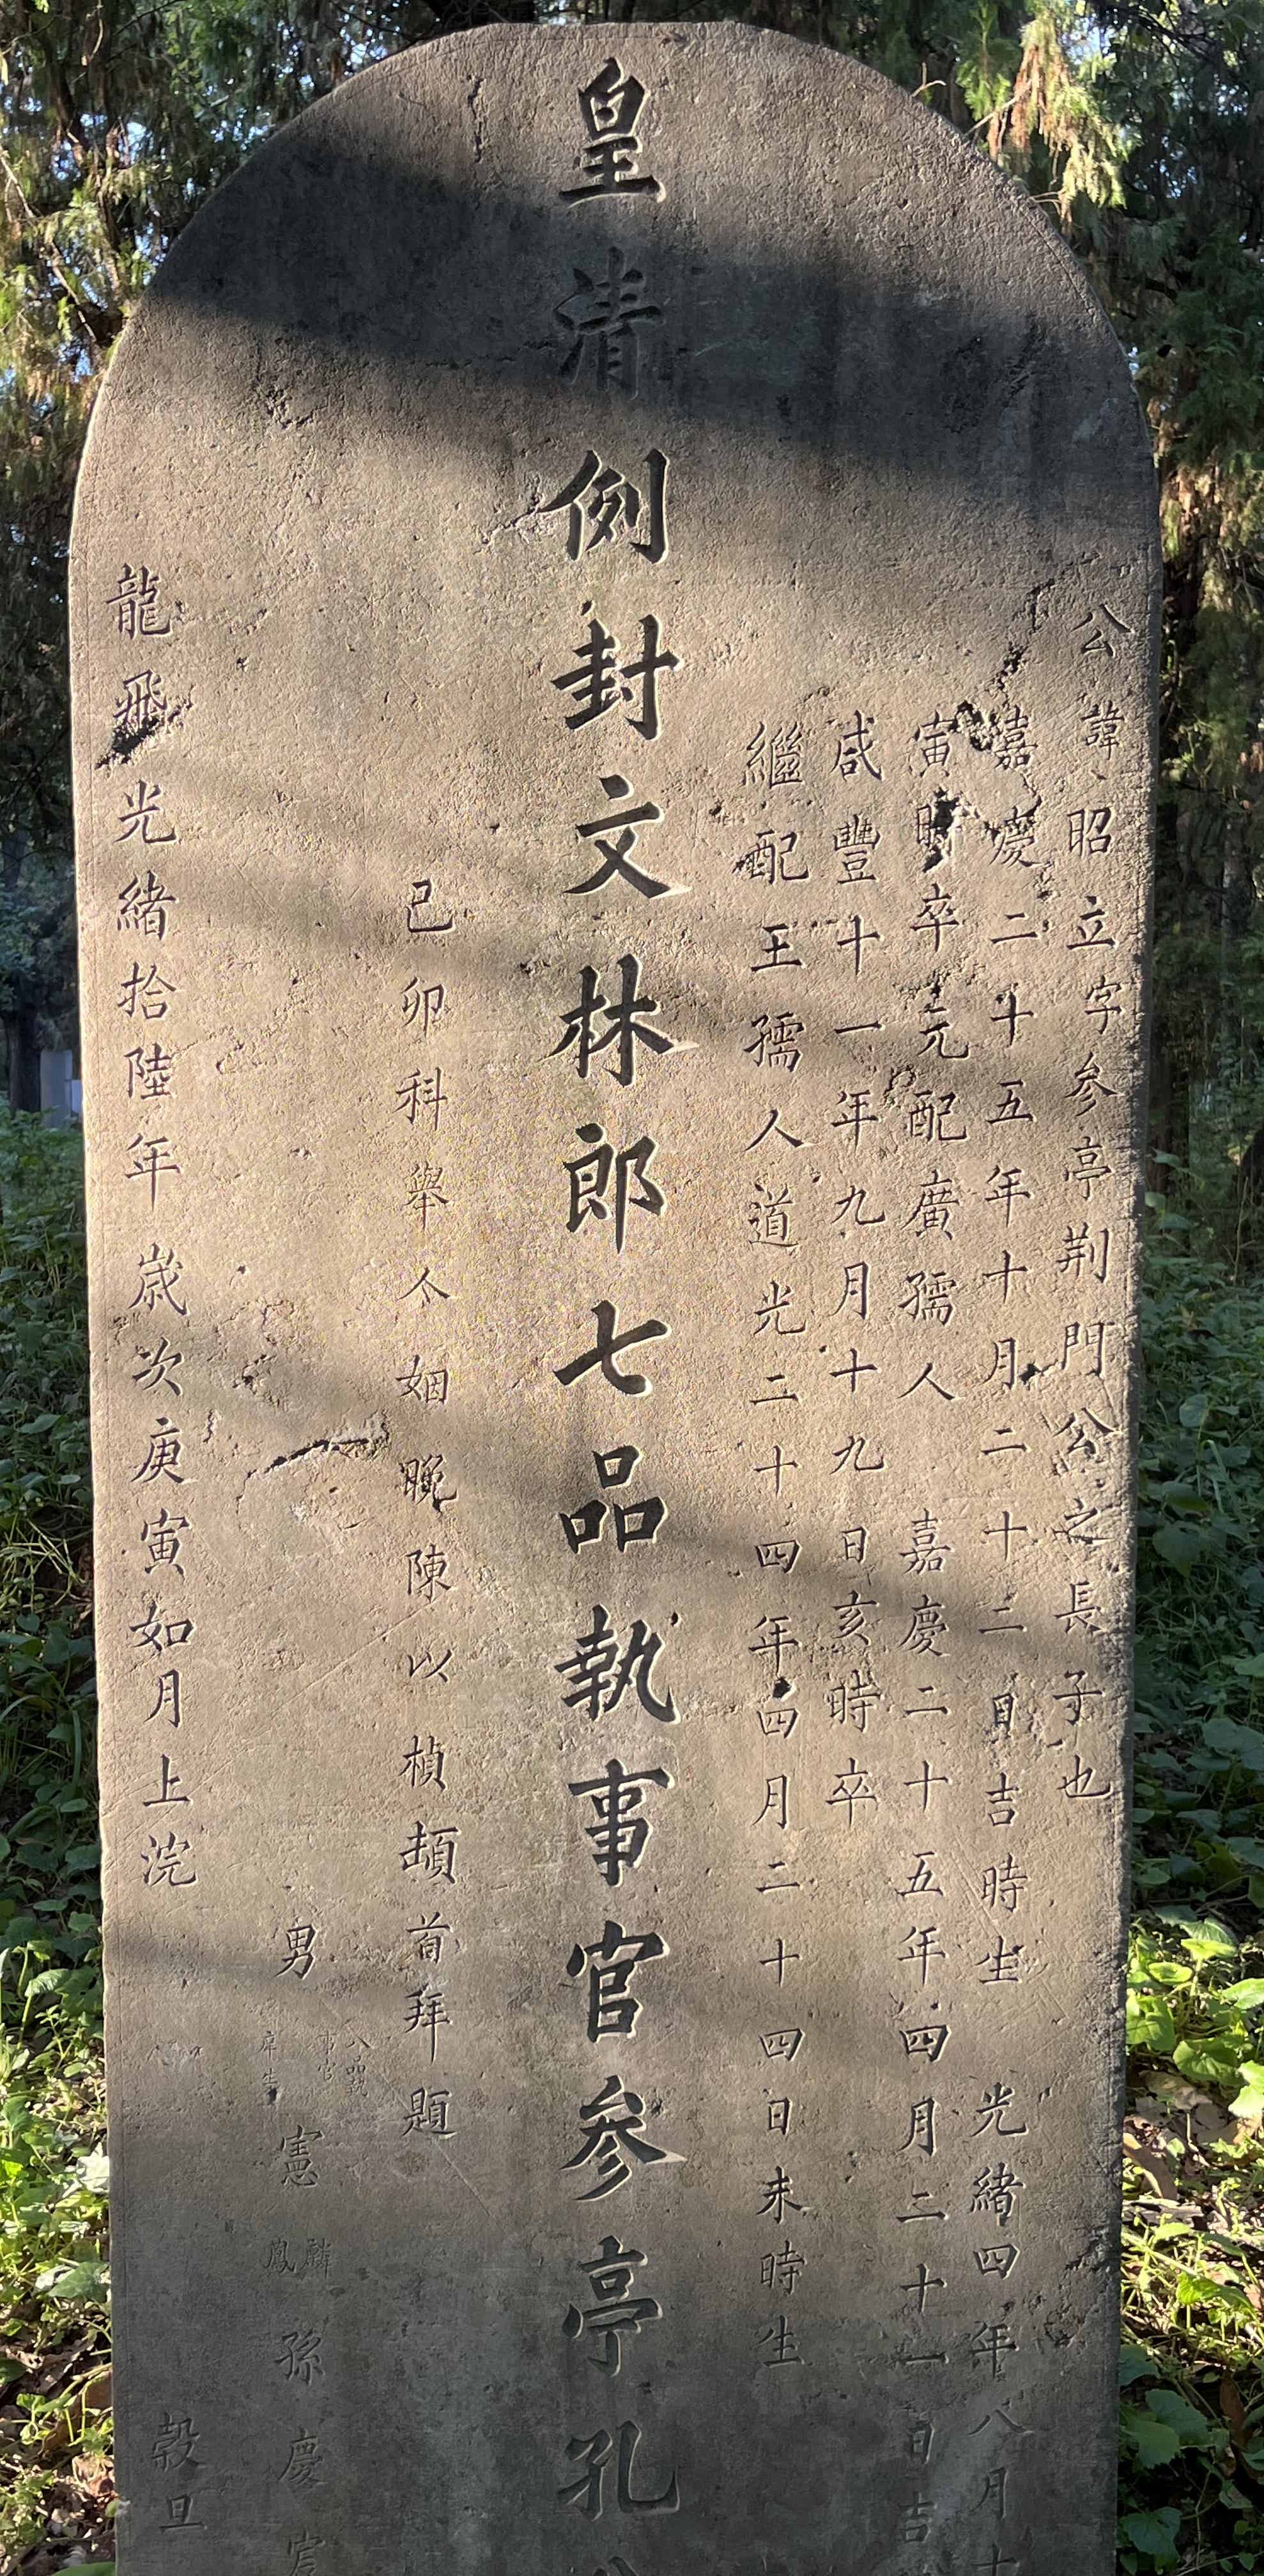 公諱昭立字参亭荆門公之長子也
嘉慶二十五年十月二十二日吉時生 光緒四年八月十
寅時卒元配廣孺人 嘉慶二十五年四月二十一日吉
咸豐十一年九月十九日亥時卒
繼配王孺人道光二十四年四月二十四日未時生
皇清例封文林郎七品執事官参亭孔
己卯科舉人姻晚陳以楨頓首拜題
男 八品執事官 庠生 憲 麟 鳳 孫慶
龍飛光緒拾陸年歲次庚寅如月上浣 穀旦